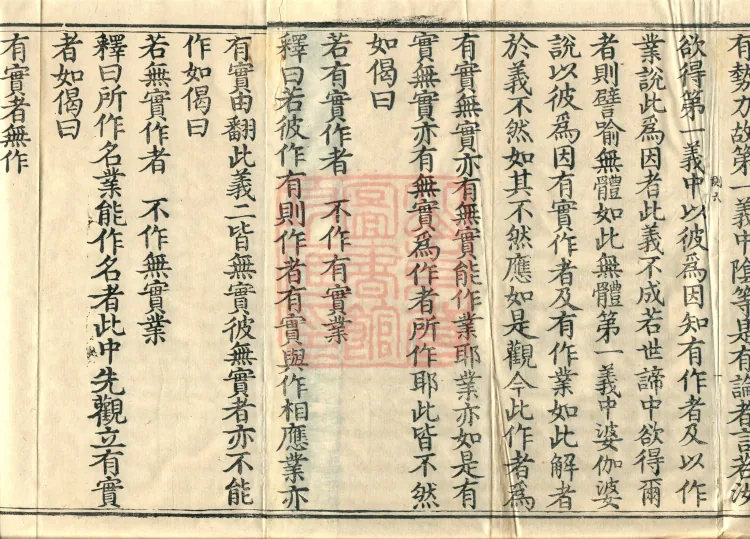 有勢力故第一義中陰等是有論者言若汝
欲得第一義中以彼爲因知有作者及以作
業說此爲因者此義不成若世諦中欲得爾
者則譬喻無體如此無體第一義中婆伽婆
說以彼爲因有實作者及有作業如此解者
於義不然如其不然應如是觀今此作者爲
有實無實亦有無實能作業耶業亦如是有
實無實亦有無實爲作者所作耶此皆不然
如偈曰
若有實作者　不作有實業
釋曰若彼作有則作者有實與作相應業亦
有實由翻此義二皆無實彼無實者亦不能
作如偈曰
若無實作者　不作無實業
釋曰所作名業能作名者此中先觀立有實
者如偈曰
有實者無作